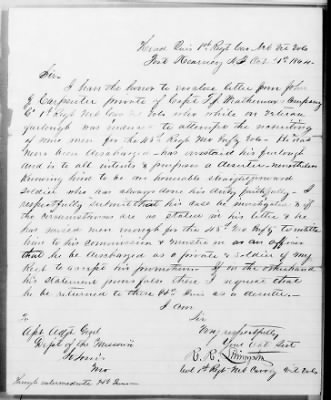 Head Qrs 1st Regt Cav Neb Vet Vols
Fort Kearney N.T. Oct 1st 1864.
Sir
I have the honor to enclose letter from John
Carpenter private of Capt T. J. Weatherwax's Company
"G" 1st Regt Neb Cav Vet Vols who while on veteran
furlough was induced to attempt the recruiting
of nine men for the 43d Regt Mo Infy Vols. He was
never been discharged - has overstaid his furlough
and is to all intents & purposes a deserter. Nevertheless
knowing him to be an honorable straightforward
soldier who has always done his duty faithfully - I
respectfully submit that his case be investigated & if
the circumstances are as stated in his letter & he
has raised men enough for the 43d Mo Infy to entitle
him to his commission & muster in as an officer
that he be discharged as a private & soldier of my
Regt to accept his promotion - If on the other hand
his statement proves false then I request that
he be returned to these Hd. Qrs as a deserter. -
I am
Sir
To Very respectfully
Asst Adjt Genl Your Obt Servt
Dept of the Missouri R. R. Livingston
St Louis Col 1st Regt Neb Cavy Vet Vols
Mo
Through intermediate Hd Qrs